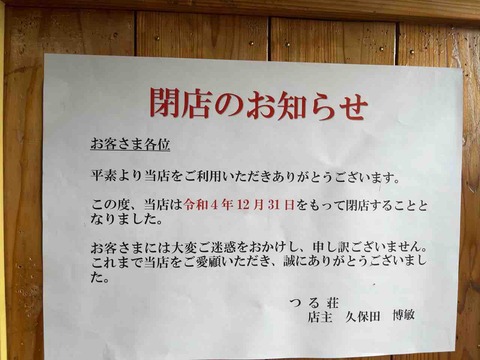 閉店のお知らせ
お客さま各位
平素より当店をご利用いただきありがとうございます。
この度、当店は令和4年12月31日をもって閉店することと
なりました。
お客さまには大変ご迷惑をおかけし、申し訳ございません。
これまで当店をご愛顧いただき、誠にありがとうございまし
た。
つる荘
店主 久保田 博敏